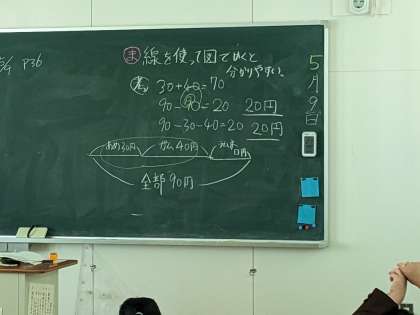 P36
5月9日
ま 線を使って図でかくと
分かりやすい。
考 30+40=70
90-70=20 20円
90-30-40=20 20円
あめ30円 ガム40円 □円
全部90円